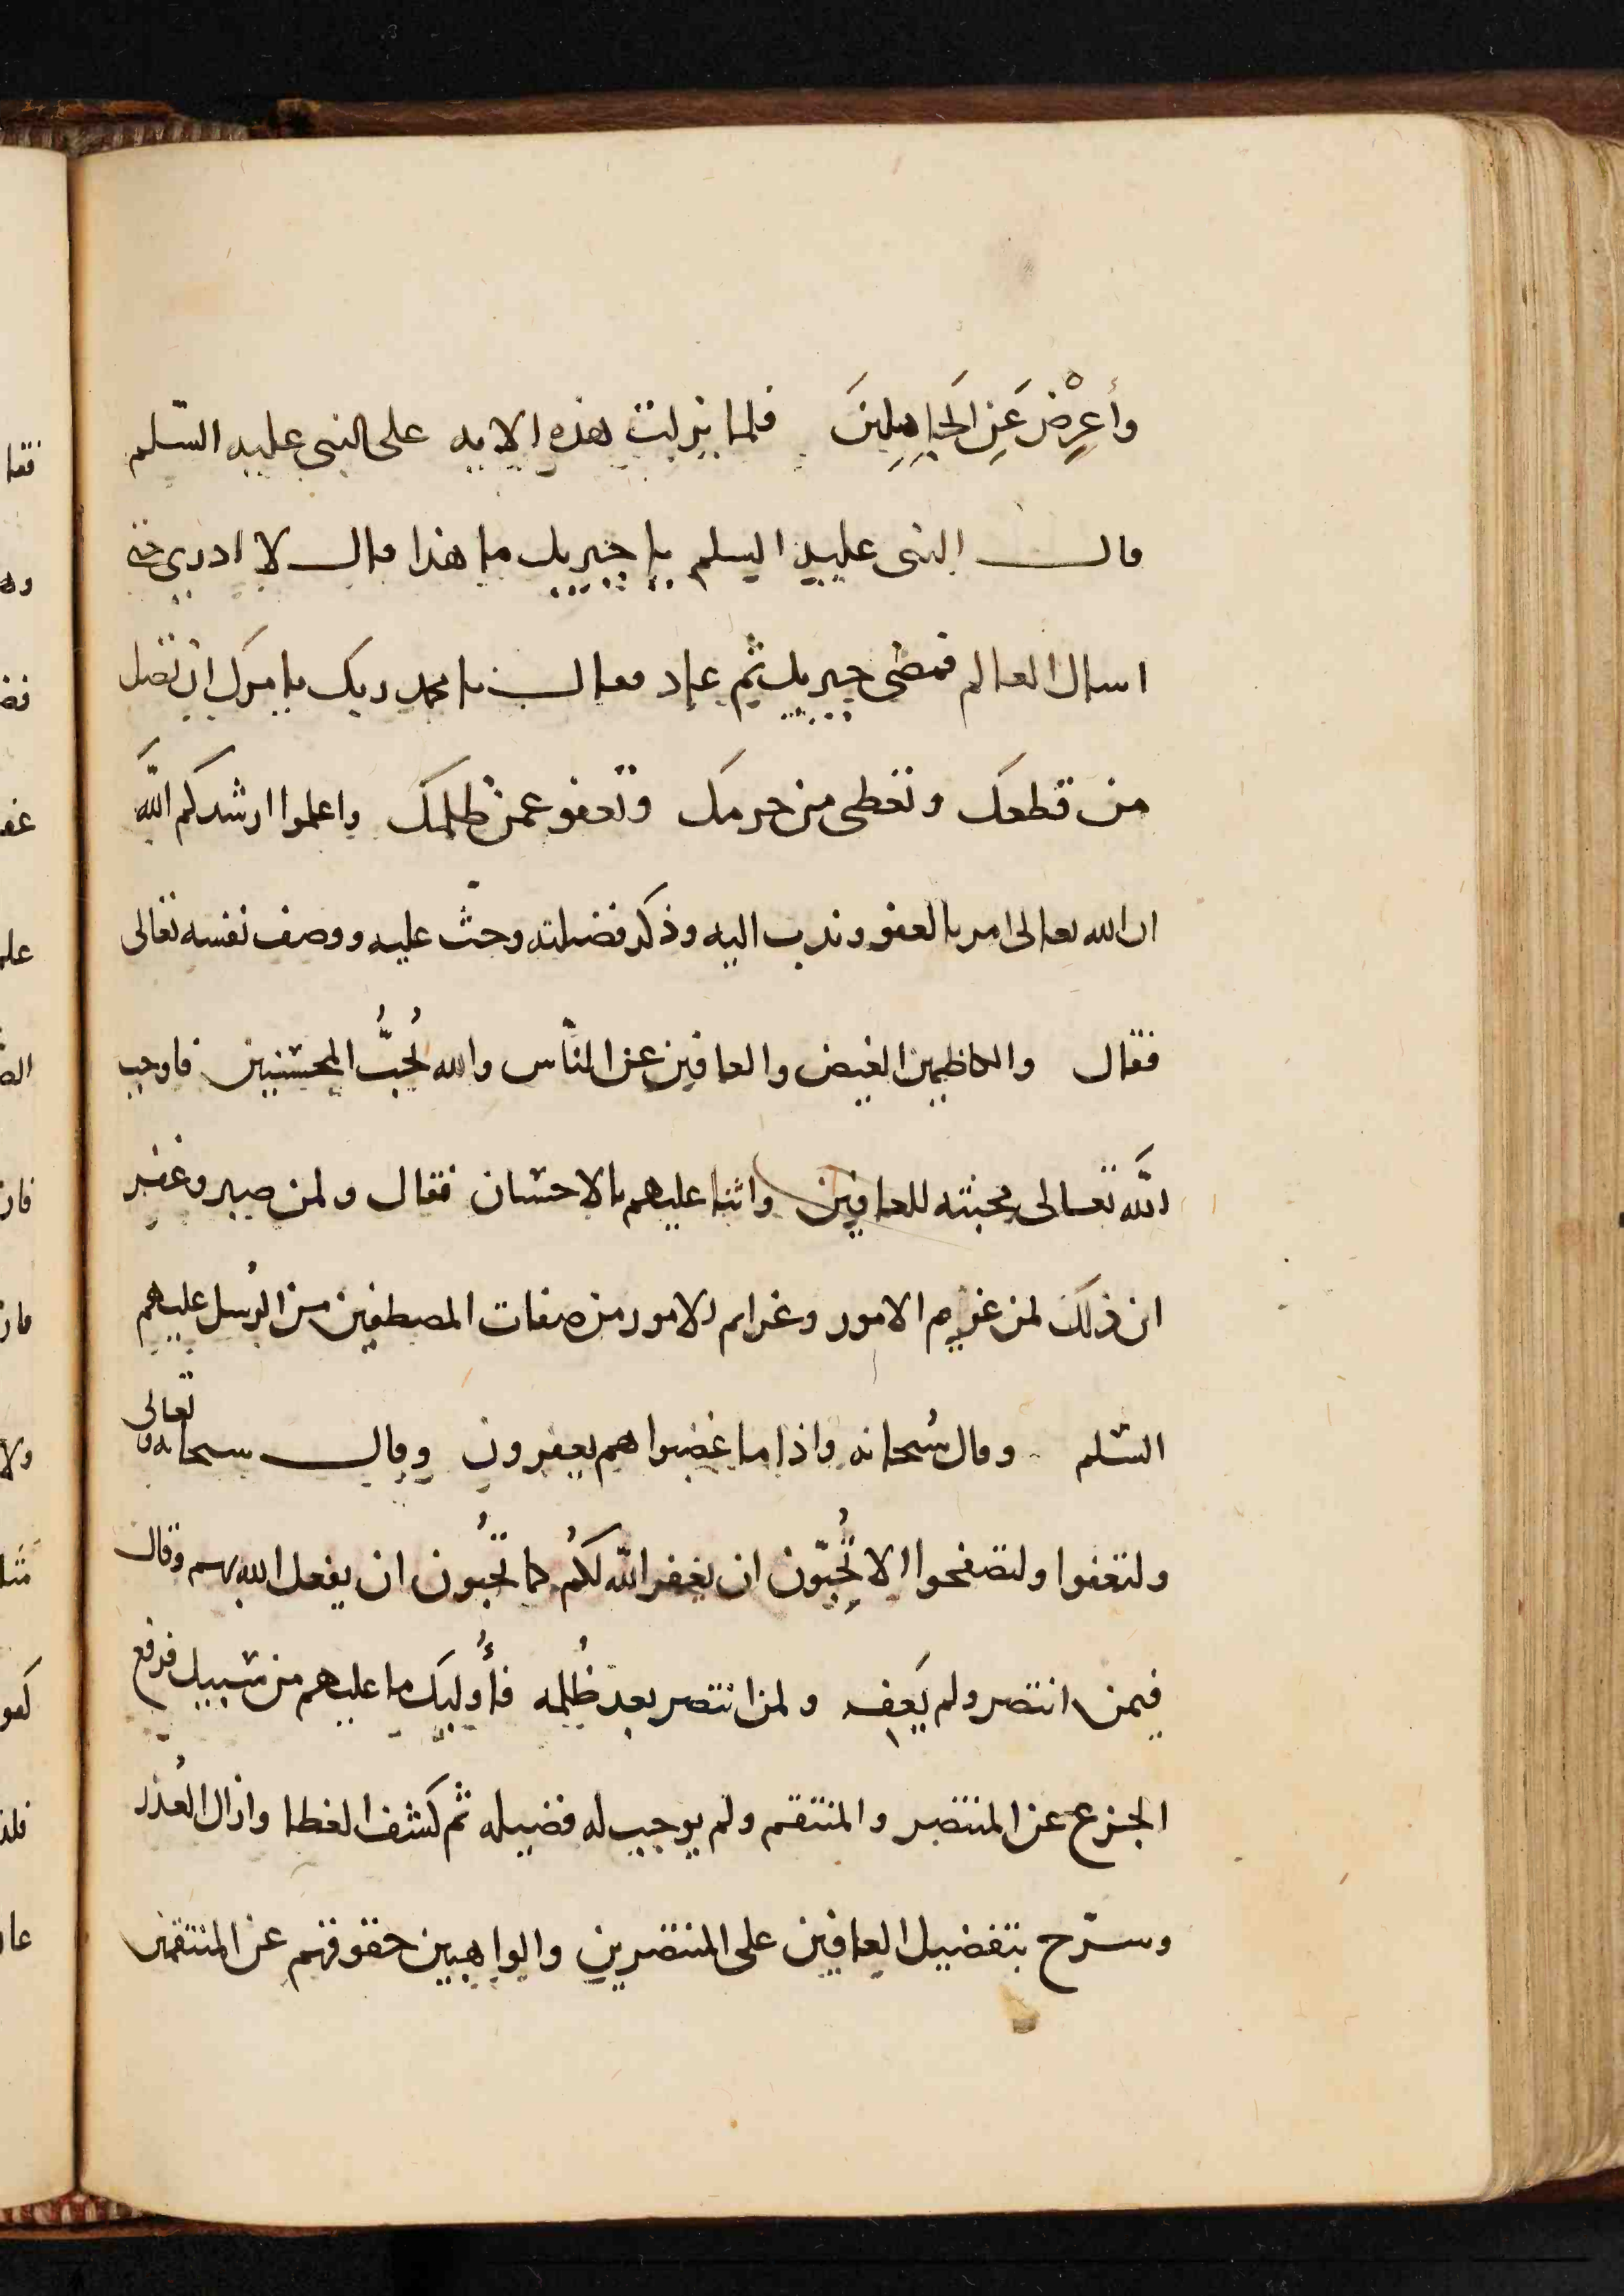 وأعْرِضْ عَنِ الْجَاهِلِينَ فلما نزلت هذه الايه على النبى عليه السّلم
قال النبى عليه السلم يا جبريل ما هذا قال لا ادرى حتى
اسال العالم فمضى جبريل ثم عاد فقال يا محمد ربك يامرك ان تصل
من قطعك وتعطى من حرمك وتعفو عمن ظلمك واعلموا ارشدكم اللّه
ان الله تعالى امر بالعفو وندب اليه وذكر فضيلته وحثّ عليه ووصف نفسه تعالى
فقال والكاظمين الغيض والعافين عن النّاس والله يُحبُّ المحسنين فاوجب
اللّه تعالى محبته للعافين واثنا عليهم بالاحسان فقال ولمن صبر وغفر
ان ذلك لمن عزم الامور وعزايم الامور من صفات المصطفين من الرُسل عليهم
السّلم وقال سُبحانه واذا ما غضبوا هم يغفرون وقال سبحانه تعالى
ولتعفوا ولتصفحوا الا تُحِبّون ان يغفر اللّه لكُم كما تُحبُون ان يفعل الله بهم وقال
فيمن انتصر ولم يَعف ولمن انتصر بعد ظُلمه فأُوليك ما عليهم من سبيل فرفع
الجزع عن المنتصر والمنتقم ولم يوجب له فضيله ثم كشف الغطا وازال العُذر
وسرّح بتفضيل العافين على المنتصرين والواهبين حقوقهم عن المنتقمين
فقا
غفر